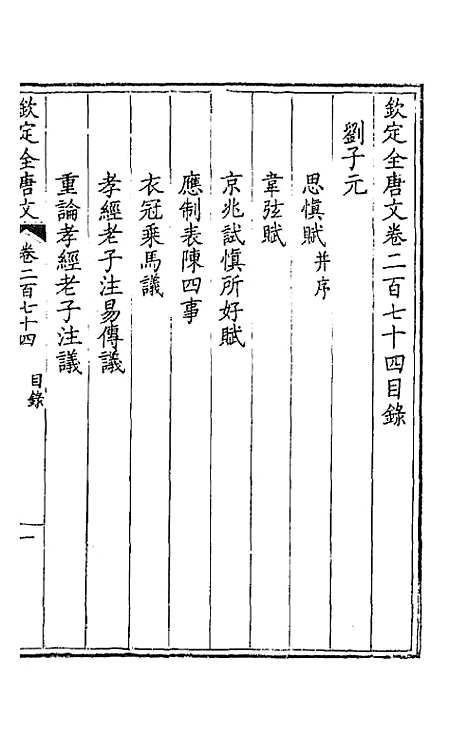 欽定全唐文卷二百七十四目錄
劉子元
思慎賦并序
韋弦賦
京兆試慎所好賦
應制表陳四事
衣冠乘馬議
孝經老子注易傳議
重論孝經老子注議
欽定全唐文 卷二百七十四 目錄 一